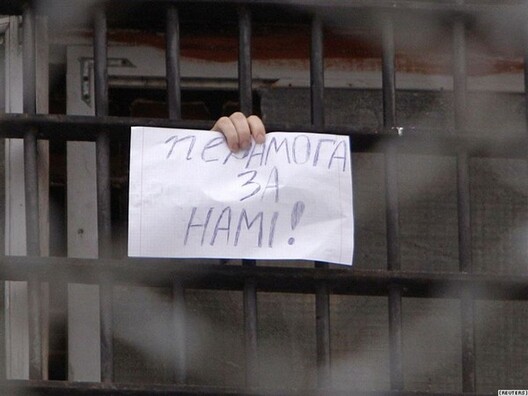 ПЕРАМОГА
ЗА
НАМІ!
(REUTERS)